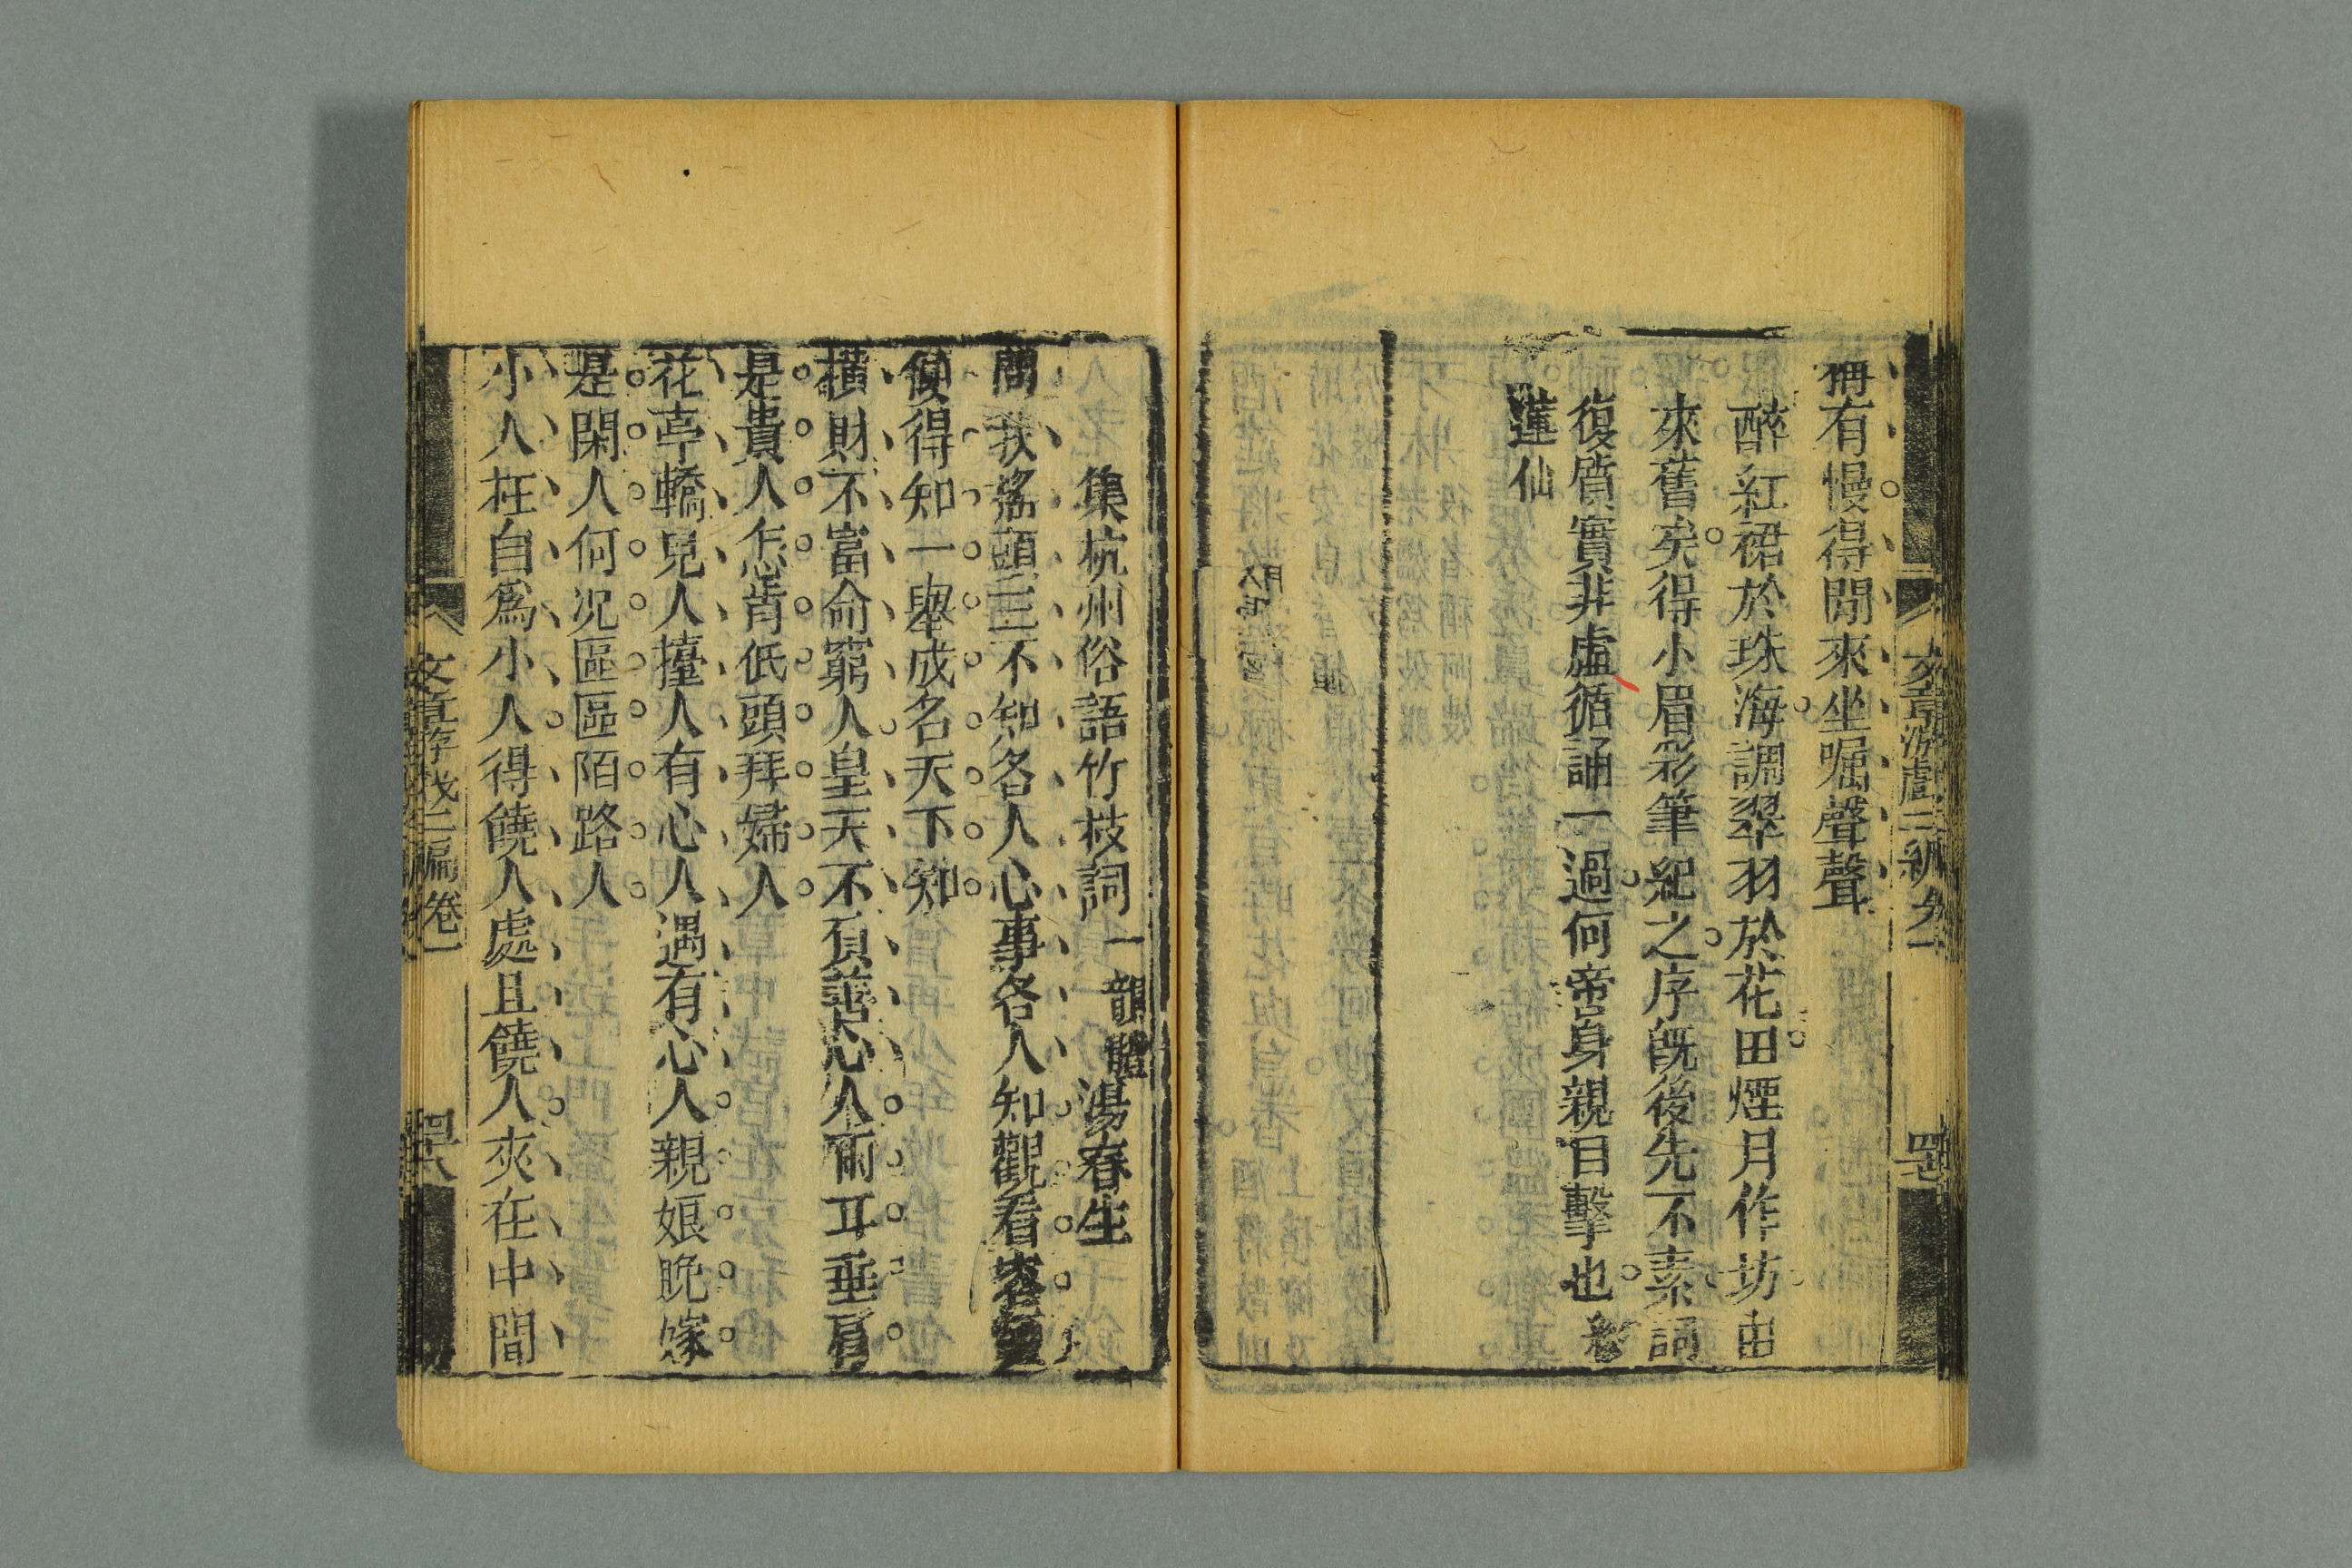 文章游戲二編卷一
稱有慢得閒來坐喔聲聲
醉紅裙於珠海調翠羽於花田煙月作坊由
來舊矣得小眉彩筆紀之序旣後先不素詞
復質實非虛循誦一過何啻身親目擊也
蓮仙
集杭州俗語竹枝詞 一韻體 湯春生
問扠搖頭三不知各人心事各人知觀看容
便得知一舉成名天下知
橫財不富命窮人皇天不負善心人兩耳垂肩
是貴人怎肯低頭拜婦人
花亭轎兒人擡人有心人遇有心人親娘晚嫁
是閑人何况區區陌路人
小人枉自爲小人得饒人處且饒人夾在中間
文章游戲二編卷一